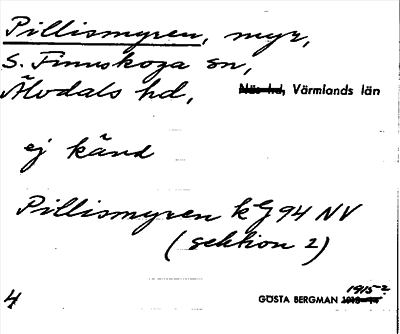 Pillismyren, myr,
S. Finnskoga sn,
Älvdals hd, Näs hd, Värmlands län
ej känd
Pillismyren kG 94 NV
(sektion 2)
1915-?
4 GÖSTA BERGMAN 1913-14